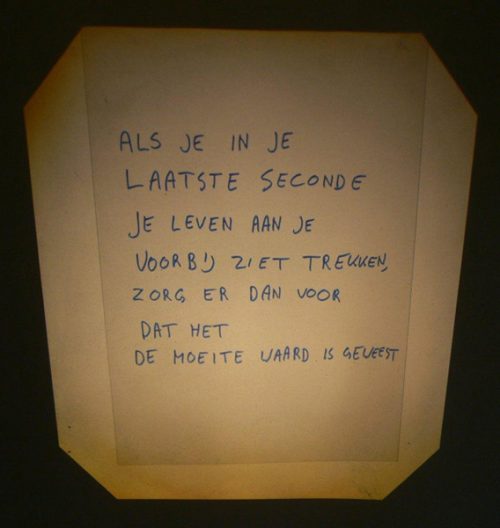 ALS JE IN JE
LAATSTE SECONDE
JE LEVEN AAN JE
VOORBIJ ZIET TREKKEN,
ZORG ER DAN VOOR
DAT HET
DE MOEITE WAARD IS GEWEEST